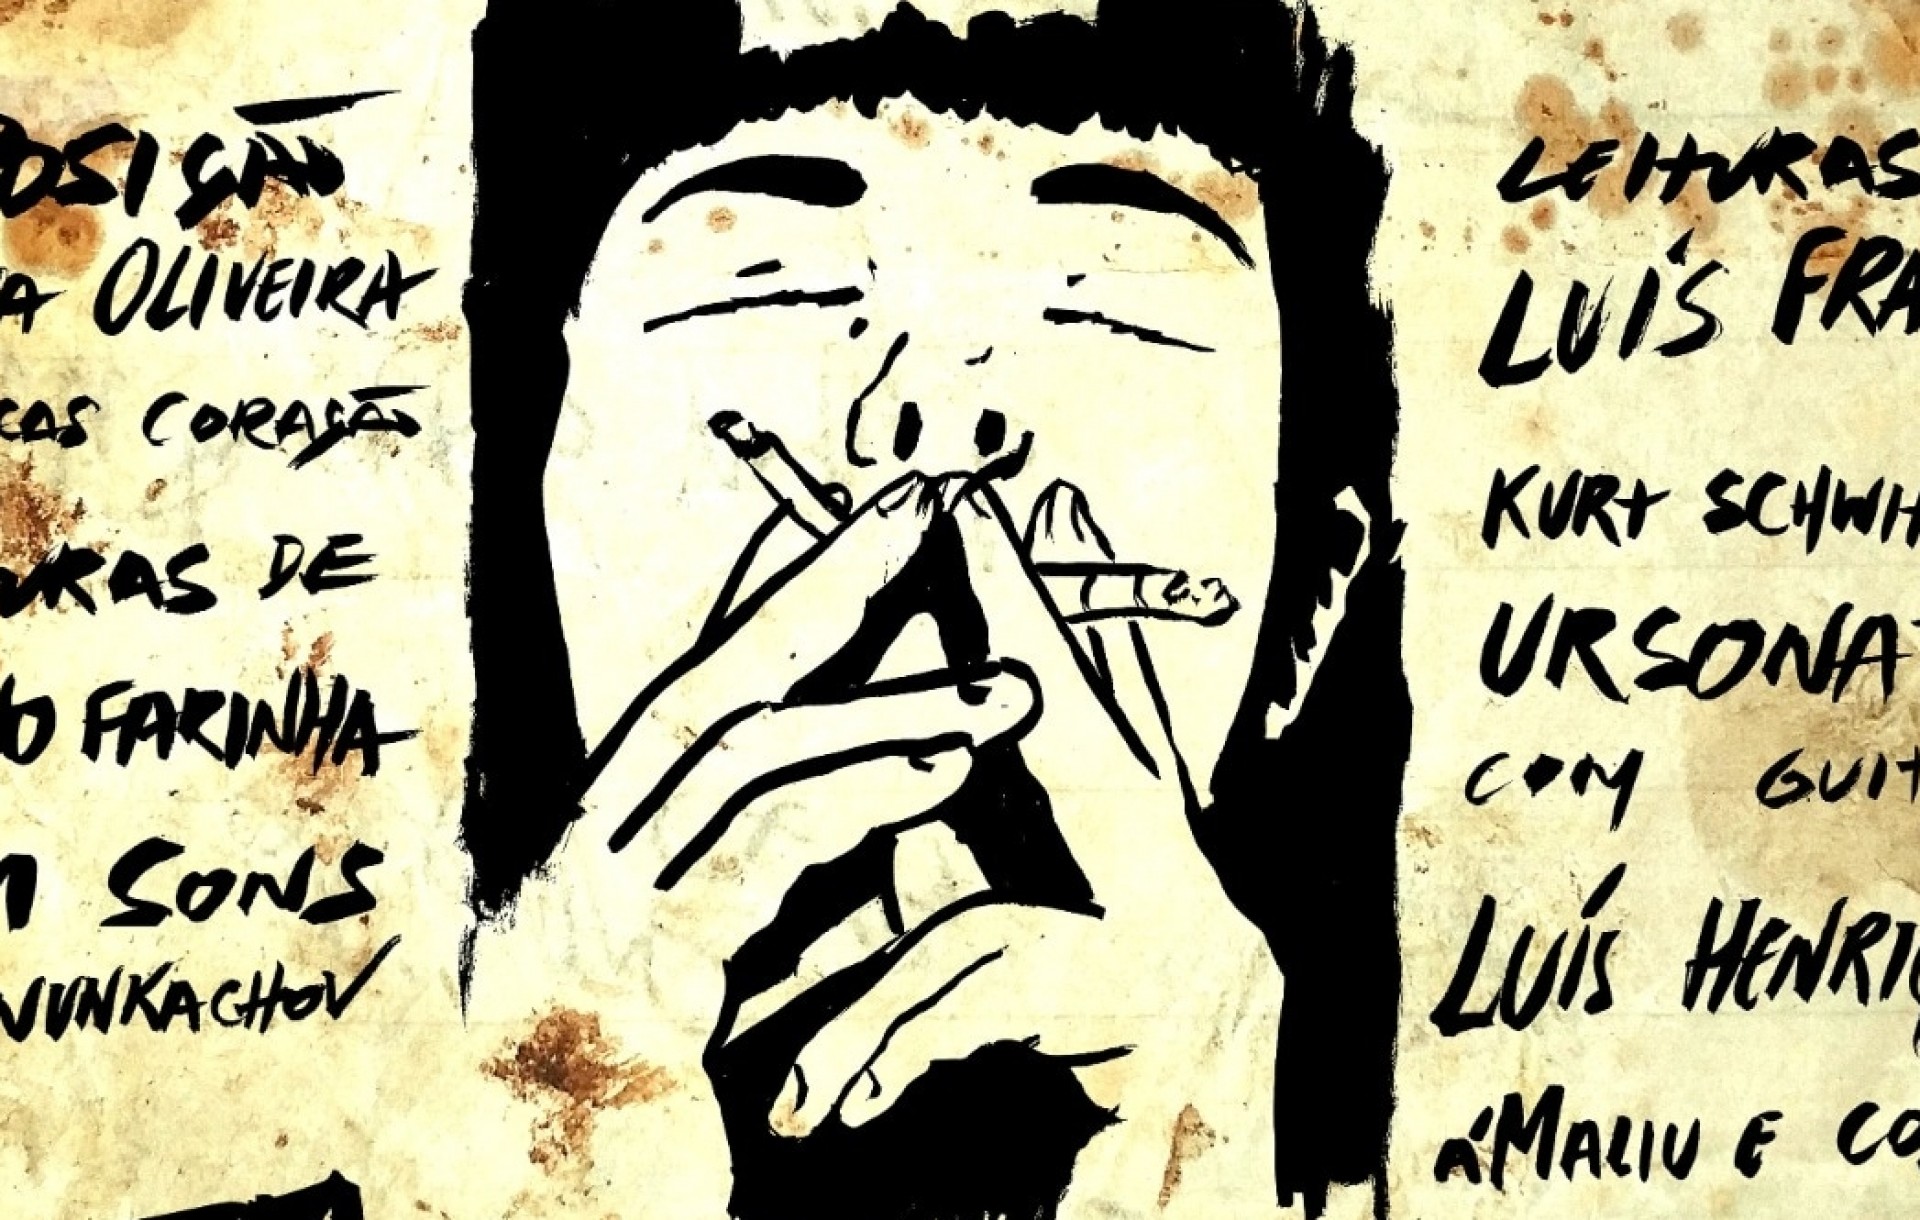 OSIÇÃO
A OLIVEIRA
CAS CORAÇÃO
URAS DE
O FARINHA
M SONS
VUNKACHOV
LEITURAS
LUÍS FRA
KURT SCHWIT
URSONAT
COM GUIT
LUÍS HENRIQ
MALIU E CO